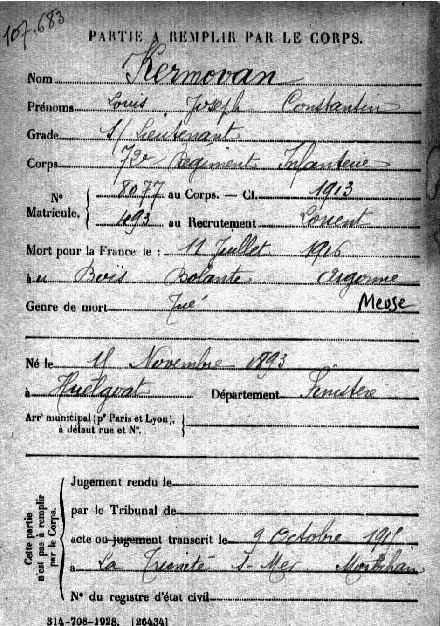 107.683
PARTIE À REMPLIR PAR LE CORPS.
Nom Kermovan
Prénoms Louis Joseph Constantin
Grade S/ Lieutenant
Corps 72e Régiment Infanterie
N° Matricule. 8077 au Corps. — Cl. 1913
493 au Recrutement Lorient
Mort pour la France le : 11 Juillet 1915
à u Bois Bolante Argonne
Genre de mort Tué Meuse
Né le 15 Novembre 1893
à Huelgoat Département Finistère
Arrt municipal (pr Paris et Lyon),
à défaut rue et N°.
Cette partie n'est pas à remplir par le Corps.
Jugement rendu le
par le Tribunal de
acte ou jugement transcrit le 9 Octobre 1915
à La Trinité S- Mer Morbihan
N° du registre d'état civil
314-708-1928. [26434]